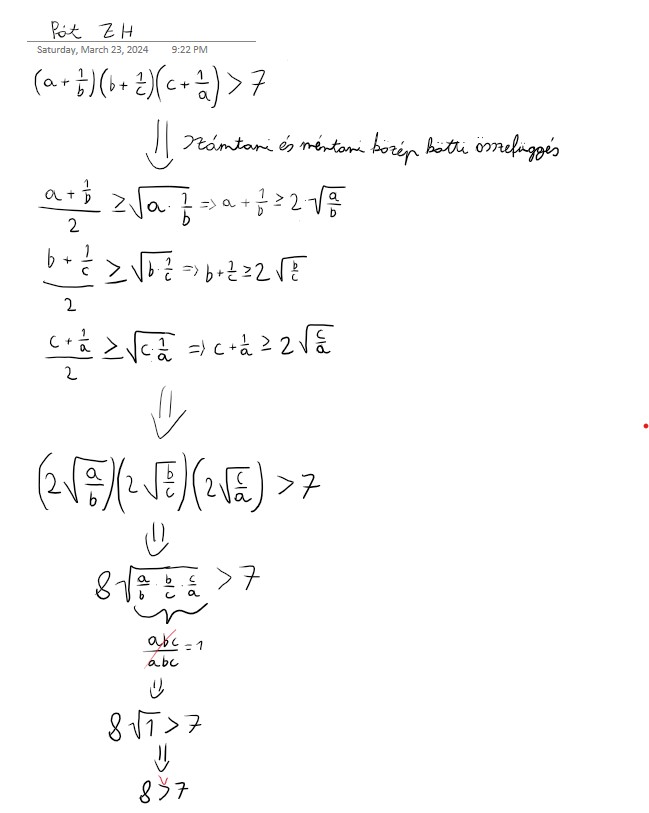 Pót ZH
Saturday, March 23, 2024 9:22 PM
(a + 1/b)(b + 1/c)(c + 1/a) > 7
⇓ Számtani és mértani közép közti összefüggés
(a + 1/b)/2 ≥ √(a · 1/b) => a + 1/b ≥ 2 · √(a/b)
(b + 1/c)/2 ≥ √(b · 1/c) => b + 1/c ≥ 2 √(b/c)
(c + 1/a)/2 ≥ √(c · 1/a) => c + 1/a ≥ 2 √(c/a)
⇓
(2√(a/b))(2√(b/c))(2√(c/a)) > 7
⇓
8 √(a/b · b/c · c/a) > 7
abc/abc = 1
⇓
8 √1 > 7
⇓
8 > 7